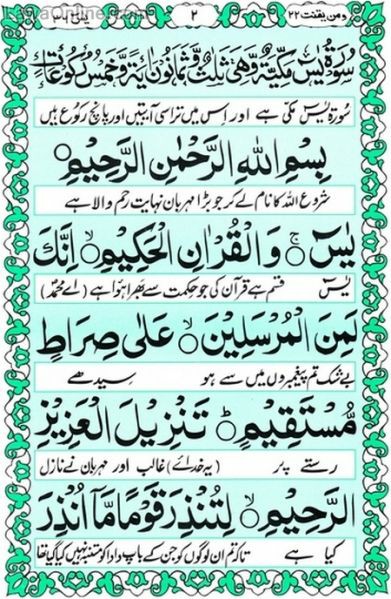 ومن یقنت ۲۲ ۲
سُوْرَةُ يٰسٓ مَكِّيَّةٌ وَّهِيَ ثَلٰثٌ وَّثَمَانُوْنَ اٰيَةً وَّخَمْسُ رُكُوْعَاتٍ
سورۃ یٰسٓ مکی ہے اور اس میں تراسی آیتیں اور پانچ رکوع ہیں
بِسْمِ اللّٰهِ الرَّحْمٰنِ الرَّحِيْمِ ○
شروع اللہ کا نام لے کر جو بڑا مہربان نہایت رحم والا ہے
يٰسٓ ۚ○ وَالْقُرْاٰنِ الْحَكِيْمِ ۙ○ اِنَّكَ
یٰسٓ قسم ہے قرآن کی جو حکمت سے بھرا ہوا ہے (اے محمدؐ)
لَمِنَ الْمُرْسَلِيْنَ ۙ○ عَلٰى صِرَاطٍ
بے شک تم پیغمبروں میں سے ہو سیدھے
مُّسْتَقِيْمٍ ؕ○ تَنْزِيْلَ الْعَزِيْزِ
رستے پر (یہ خدائے) غالب اور مہربان نے نازل
الرَّحِيْمِ ۙ○ لِتُنْذِرَ قَوْمًا مَّآ اُنْذِرَ
کیا ہے تاکہ تم ان لوگوں کو جن کے باپ دادا کو متنبہ نہیں کیا گیا تھا